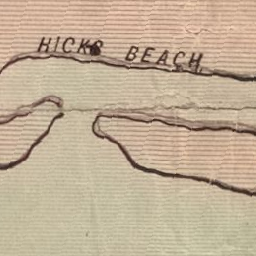 HICKS BEACH